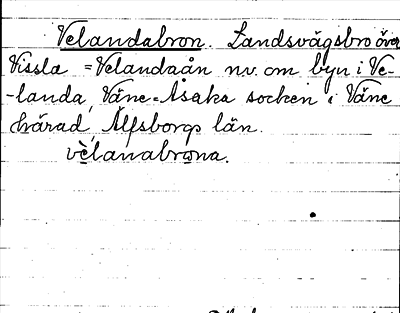 Velandabron. Landsvägsbro över
Vissla = Velandaån nv. om byn i Ve-
-landa, Väne-Åsaka socken i Väne
härad, Älfsborgs län.
vèlanabrona.